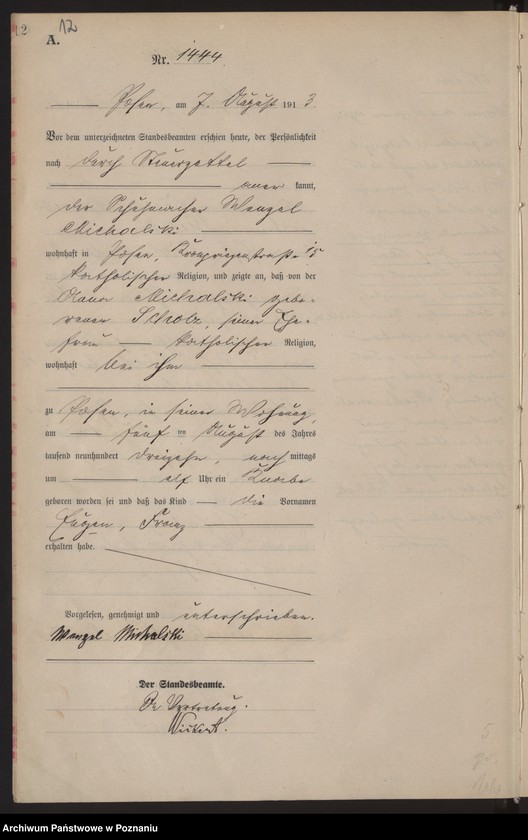 12 12
A.
Nr. 1444
Posen, am 7. August 1913.
Vor dem unterzeichneten Standesbeamten erschien heute, der Persönlichkeit
nach durch Steuerzettel
aner kannt,
der Schuhmacher Wenzel
Michalski
wohnhaft in Posen, Kronprinzenstraße 15
katholischer Religion, und zeigte an, daß von der
Michalski gebo-
renen Scholz, seiner Ehe-
frau katholischer Religion,
wohnhaft bei ihm
zu Posen, in seiner Wohnung,
am fünften August des Jahres
tausend neunhundert dreizehn, nach mittags
um elf Uhr ein Knabe
geboren worden sei und daß das Kind die Vornamen
Eugen, Franz
erhalten habe.
Vorgelesen, genehmigt und unterschrieben.
Wenzel Michalski
Der Standesbeamte.
In Vertretung.
Archiwum Państwowe w Poznaniu